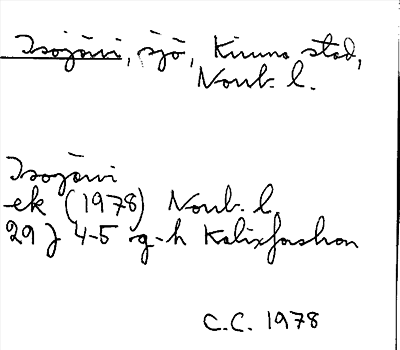 Isojärvi, sjö, Kiruna stad,
Norrb. l.
Isojärvi
ek (1978) Norrb. l.
29 J 4-5 g-h Kalixforshon
C.C. 1978